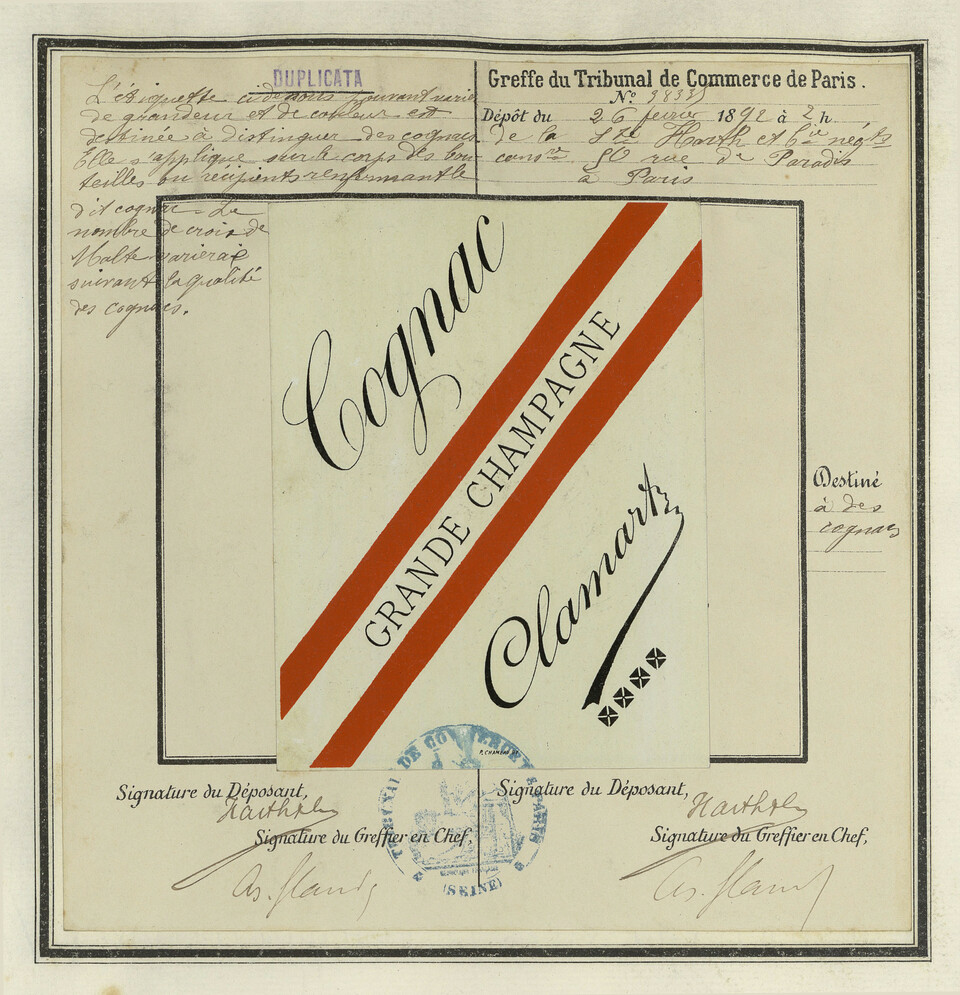 DUPLICATA
L'étiquette ci dessous pouvant varier
de grandeur et de couleur est
destinée à distinguer des cognacs
Elle s'applique sur le corps des bou-
teilles ou récipients renfermant le
dit cognac. Le
nombre de croix de
Malte variera
suivant la qualité
des cognacs.
Greffe du Tribunal de Commerce de Paris.
No
Dépôt du 26 février 1892 à 2 h.
de la Sté Harth et Cie négts
50 rue de Paradis
à Paris
Cognac
GRANDE CHAMPAGNE
Clamart
Destiné
à des
cognacs
TRIBUNAL DE COMMERCE DE PARIS
(SEINE)
Signature du Déposant,
Signature du Greffier en Chef,
Signature du Déposant,
Signature du Greffier en Chef,